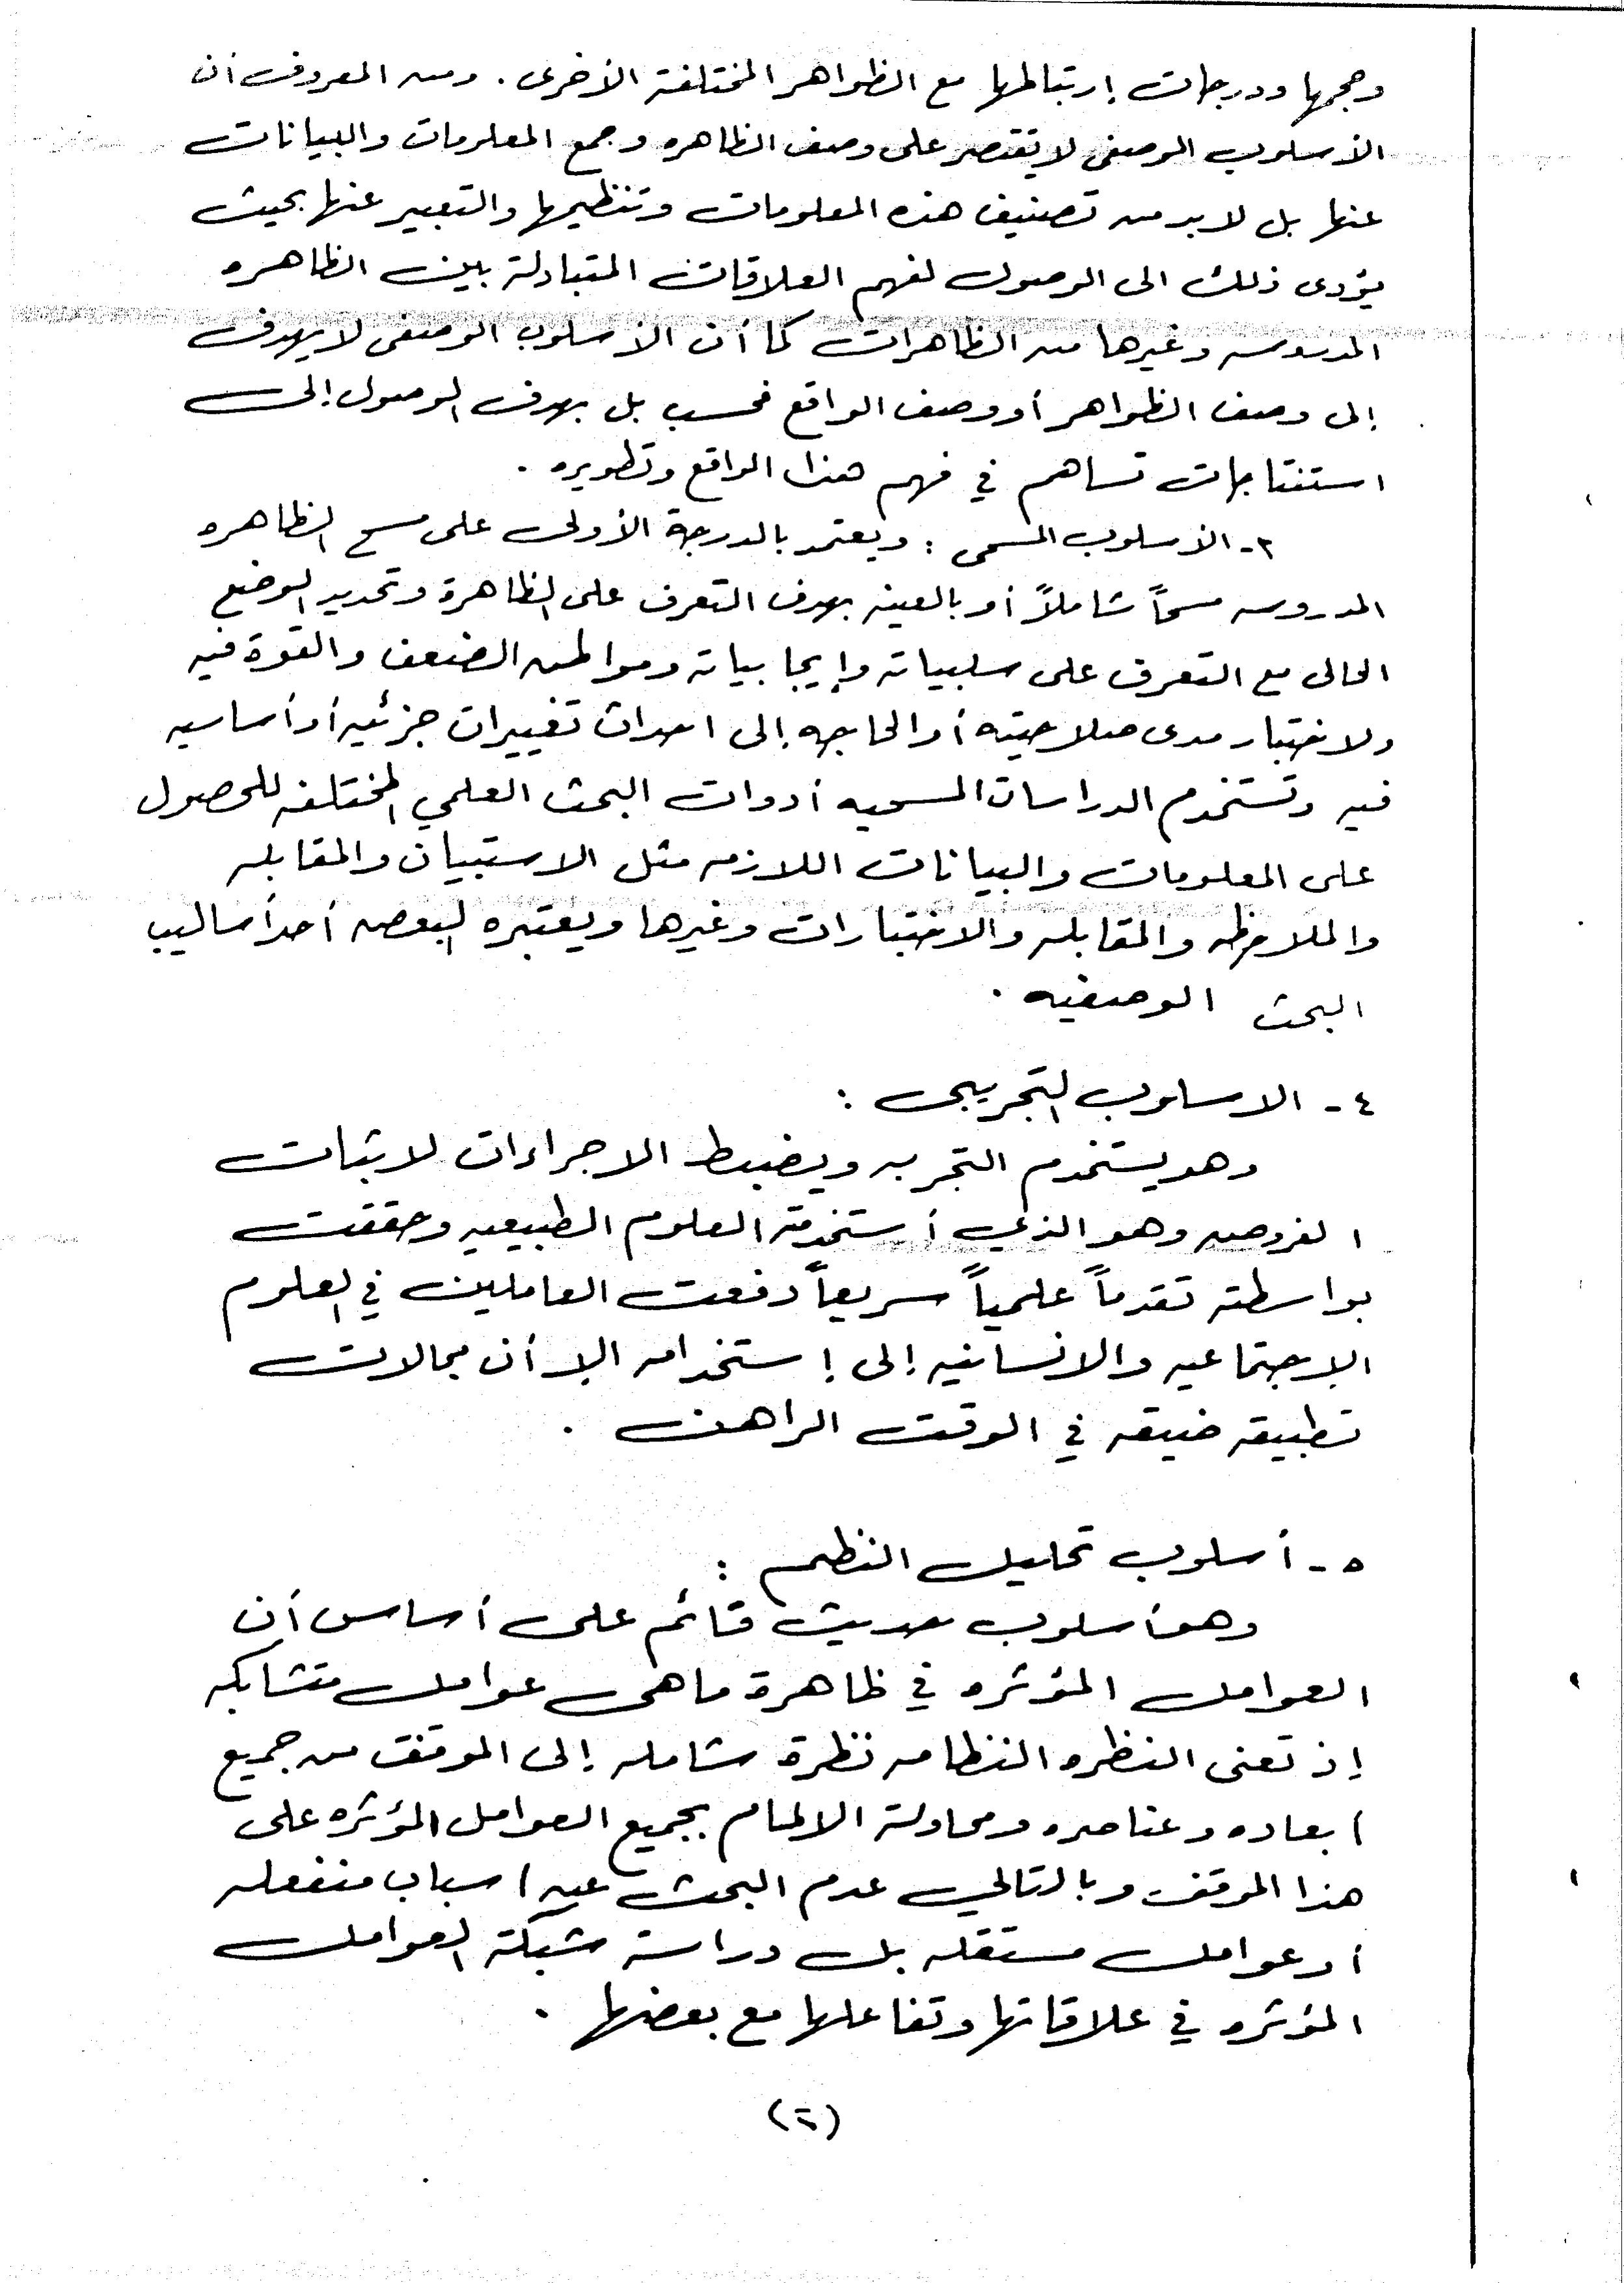 وحجمها ودرجات إرتباطها مع الظواهر المختلفة الأخرى . ومن المعروف أن
الأسلوب الوصفى لا يقتصر على وصف الظاهره وجمع المعلومات والبيانات
عنها بل لابد من تصنيف هذه المعلومات وتنظيمها والتعبير عنها بحيث
يؤدى ذلك الى الوصول لفهم العلاقات المتبادلة بين الظاهره
المدروسه وغيرها من الظاهرات كما أن الأسلوب الوصفى لا يهدف
إلى وصف الظواهر أو وصف الواقع فحسب بل بهدف الوصول إلى
استنتاجات تساهم في فهم هذا الواقع وتطويره .
٣- الأسلوب المسحى : ويعتمد بالدرجة الأولى على مسح الظاهره
المدروسه مسحاً شاملاً أو بالعينه بهدف التعرف على الظاهرة وتحديد الوضع
الحالى مع التعرف على سلبياته وإيجابياته ومواطن الضعف والقوة فيه
ولاختبار مدى صلاحيته أو الحاجه إلى احداث تغييرات جزئيه أو أساسيه
فيه وتستخدم الدراسات المسحيه أدوات البحث العلمي المختلفه للحصول
على المعلومات والبيانات اللازمه مثل الاستبيان والمقابله
والملاحظه والمقابله والاختبارات وغيرها ويعتبره البعض أحد أساليب
البحث الوصفيه .
٤- الاسلوب التجريبى :
وهو يستخدم التجربه ويضبط الاجراءات لاثبات
الفروض وهو الذي أستخدمته العلوم الطبيعيه وحققت
بواسطته تقدماً علمياً سريعاً دفعت العاملين في العلوم
الإجتماعيه والانسانيه إلى إستخدامه إلا أن مجالات
تطبيقه ضيقه في الوقت الراهن .
٥- أسلوب تحليل النظم :
وهو أسلوب حديث قائم على أساس أن
العوامل المؤثره في ظاهرة ما هى عوامل متشابكه
إذ تعنى النظره النظامه نظرة شامله إلى الموقف من جميع
ابعاده وعناصره ومحاولة الالمام بجميع العوامل المؤثره على
هذا الموقف وبالتالي عدم البحث عن اسباب منفصله
أو عوامل مستقله بل دراسة شبكة العوامل
المؤثره في علاقاتها وتفاعلها مع بعضها .